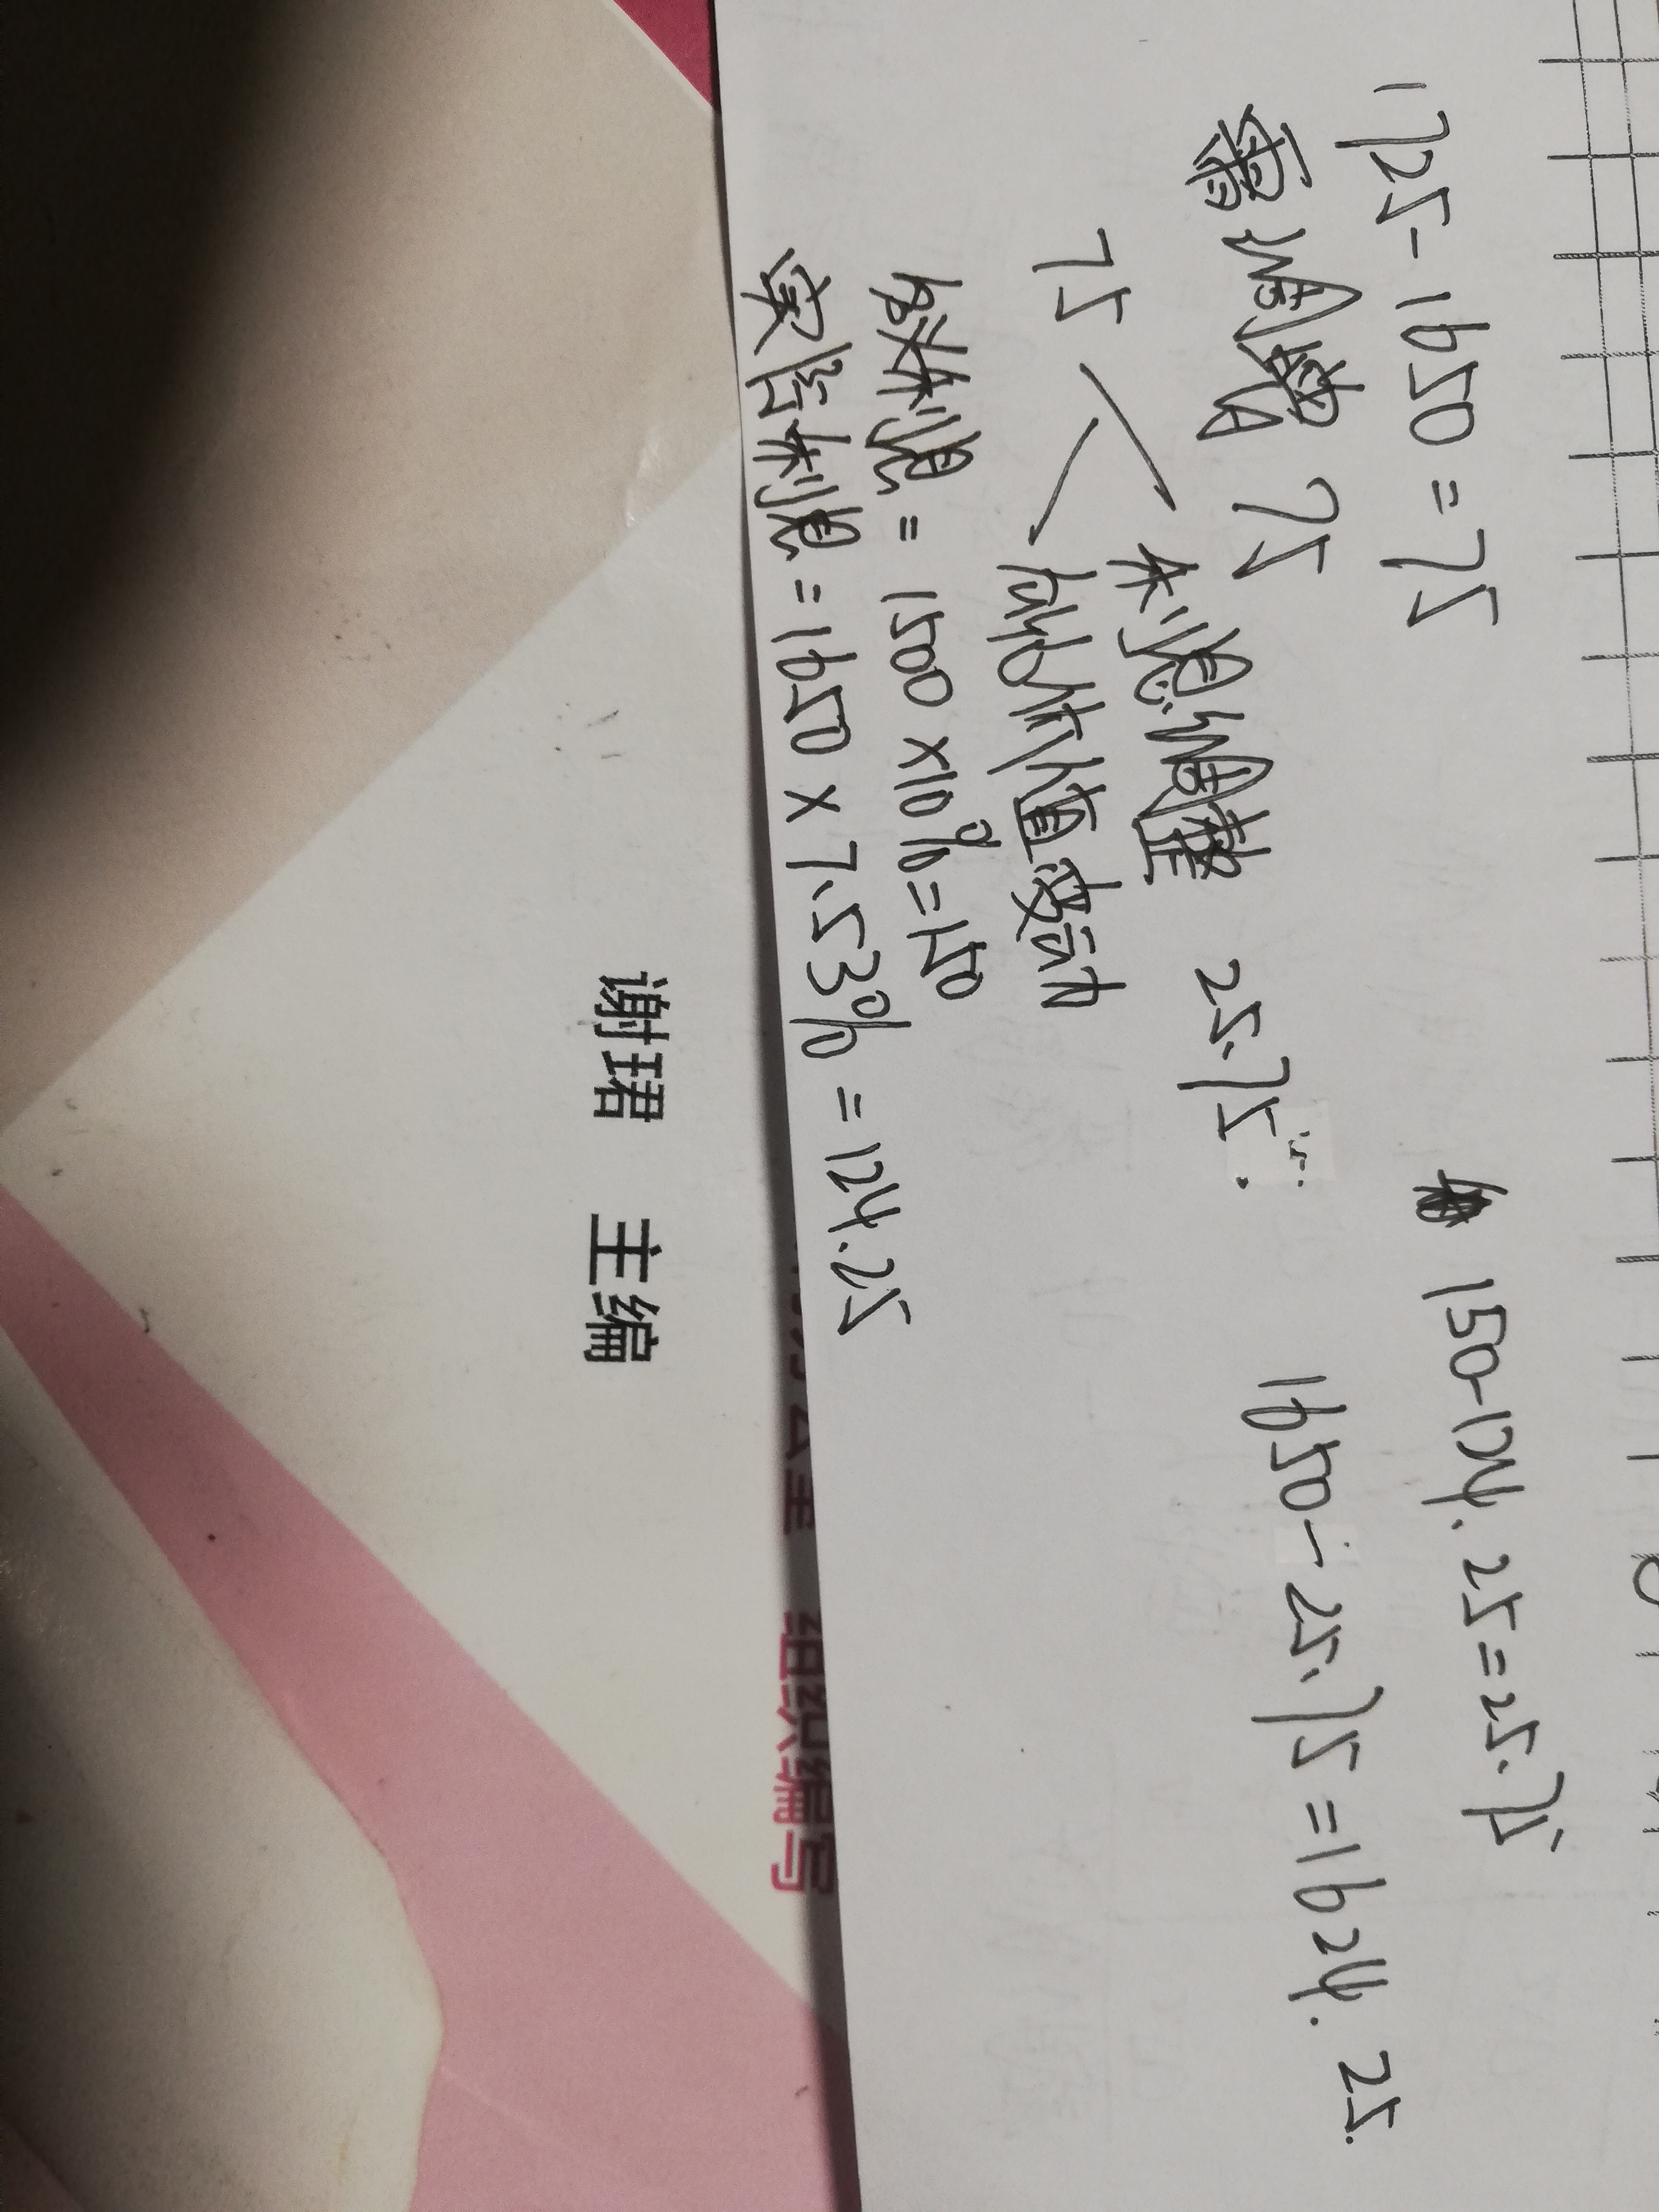 1725-1650=75
需调整 75
75
利息调整 25.75
公允价值变动
收利息=1500×10%=150
实际利息=1650×7.53%=124.25
150-124.25=25.75
1650-25.75=1624.25
谢珺 主编
组织编写